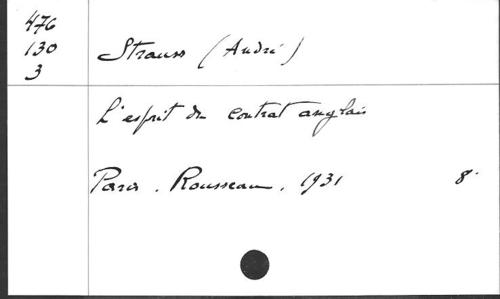 476
130
3
Strauss (André)
L'esprit du contrat anglais
Paris. Rousseau. 1931 8°